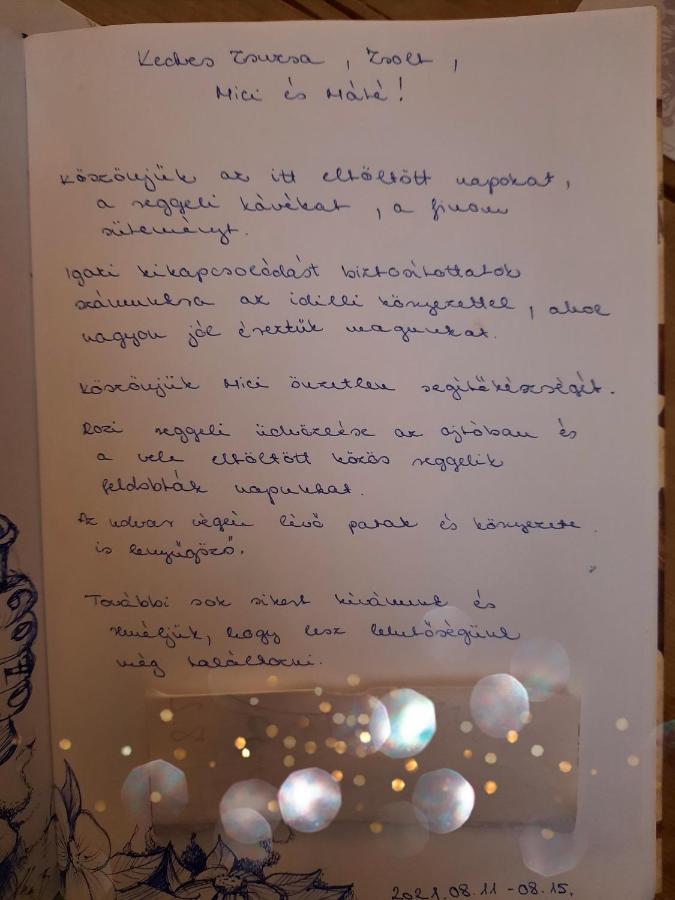 Kedves Zsuzsa, Zsolt,
Mici és Máté!
Köszönjük az itt eltöltött napokat,
a reggeli kávékat, a finom
süteményt.
Igazi kikapcsolódást biztosítottatok
számunkra az idilli környezettel, ahol
nagyon jól éreztük magunkat.
Köszönjük Mici önzetlen segítőkészségét.
Rozi reggeli üdvözlése az ajtóban és
a vele eltöltött közös reggelik
feldobták napunkat.
Az udvar végén lévő patak és környezete
is lenyűgöző.
További sok sikert kívánunk és
reméljük, hogy lesz lehetőségünk
még találkozni.
2021.08.11-08.15.